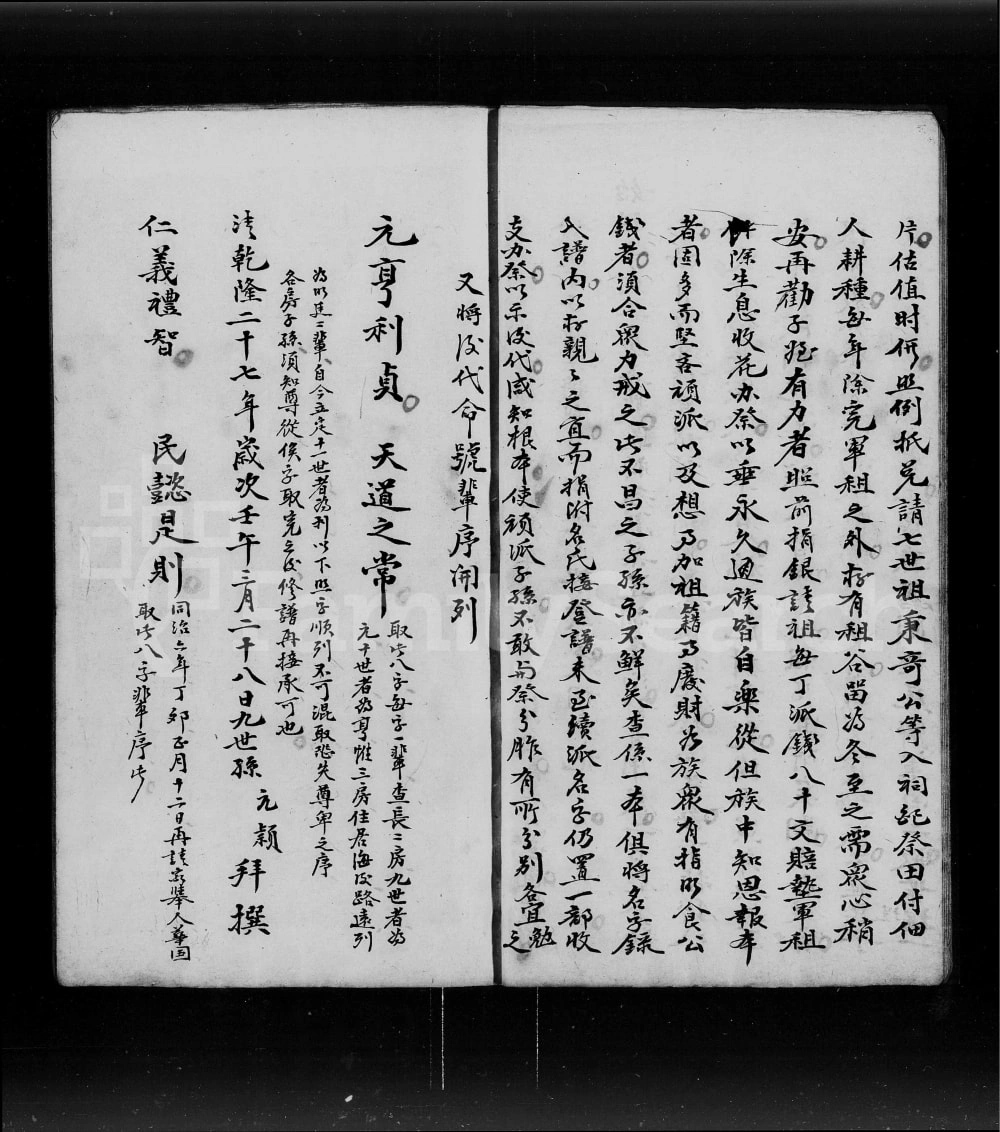 片估值时價照例抵兑請七世祖秉奇公等入祠配祭田付佃
人耕種每年除完軍租之外存有租谷留為冬至之需衆心稍
安再勸子姪有力者照前捐銀該祖每丁派錢八十文賠墊軍租
併除生息收花办祭以垂永久通族皆自樂從但族中知恩報本
者固多而堅吝頑派以及想乃加祖籍乃廢財為族衆有指收食公
錢者須合衆力戒之此不昌之子孫亦不鮮矣查係一本俱將名字錄
入譜内以存親〻之宜而捐附名氏接登譜末至續派名字仍置一部收
支办祭以示後代咸知根本使頑派子孫不敢与祭分胙有所分别各宜勉之
又將後代命號輩序開列
元亨利貞 天道之常
取此八字每字一輩查長二房九世者為
元十世者為亨惟三房住居海後路遠列
為以連二輩自今立定十一世者為利以下照字順列不可混取恐失尊卑之序
各房子孫須知尊從俟字取完之後修譜再接承可也
清乾隆二十七年歲次壬午三月二十八日九世孫 元穎 拜撰
仁義禮智 民懿是則
同治六年丁卯正月十二日再請家舉人華国
取此八字輩序此
FamilySearch